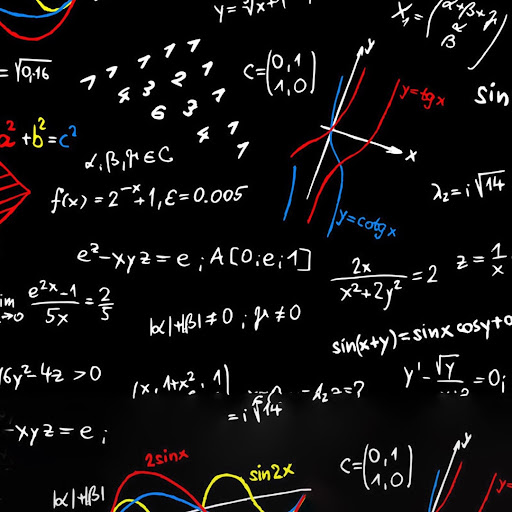 y = ∛x+1
X₁ = (α+β+γ
α
β
= √0,16
1 1 1 1 1
4 3 2 1
6 3 1
4 1
1
C = (0, 1
1, 0)
y
y=tgx
sin
a² + b² = c²
x
α, β, γ ∈ C
λ₂ = i √14
f(x) = 2⁻ˣ + 1, ε = 0.005
y=cotgx
eᶻ - xyz = e ; A [0; e; 1]
2x / (x² + 2y²) = 2
z = 1/x
lim →0 (e²ˣ - 1) / 5x = 2/5
|α| + |β| ≠ 0 ; γ ≠ 0
sin(x+y) = sinx cosy +
16y² - 4z > 0
(x, 1+x², 1)
- λ₂ = ?
y' - √y / = 0;
= i √14
- xyz = e ;
2sinx
sin2x
C = (0, 1
1, 0)
y
y=
|α| + |β|